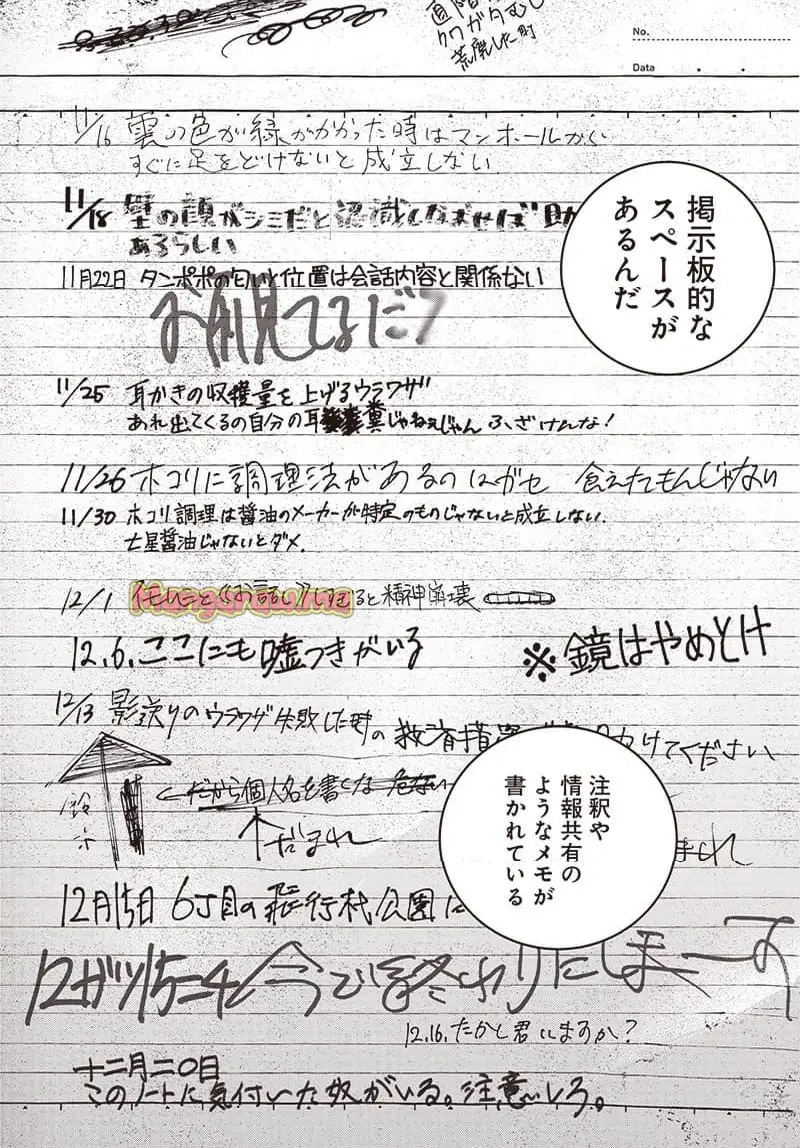 クワガタむし
荒廃した町
No.
Data
11/16 雲の色が緑がかった時はマンホールから
すぐに足をどけないと成立しない
掲示板的な
スペースが
あるんだ
11/18 壁の顔がシミだと認識しなせば助
あるらしい
11月22日 タンポポの匂いと位置は会話内容と関係ない
お前見てるだろ
11/25 耳かきの収穫量を上げるウラワザ
あれ出てくるの自分の耳糞じゃねぇじゃん ふざけんな!
11/26 ホコリに調理法があるのはガセ 食えたもんじゃない
11/30 ホコリ調理は醤油のメーカーが特定のものじゃないと成立しない.
七星醤油じゃないとダメ.
12/1 すると精神崩壊
Mangarawima
12.6. ここにも嘘つきがいる
※鏡はやめとけ
12/13 影送りのウラワザ失敗した時の救済措置 けてください
←だから個人名を書くな 危ない
↑だまれ
まれ
注釈や
情報共有の
ようなメモが
書かれている
12月15日 6丁目の飛行機公園に
今で終わりにしまーす
12.16. たかし君いますか?
十二月二〇日
このノートに気付いた奴がいる。注意しろ。